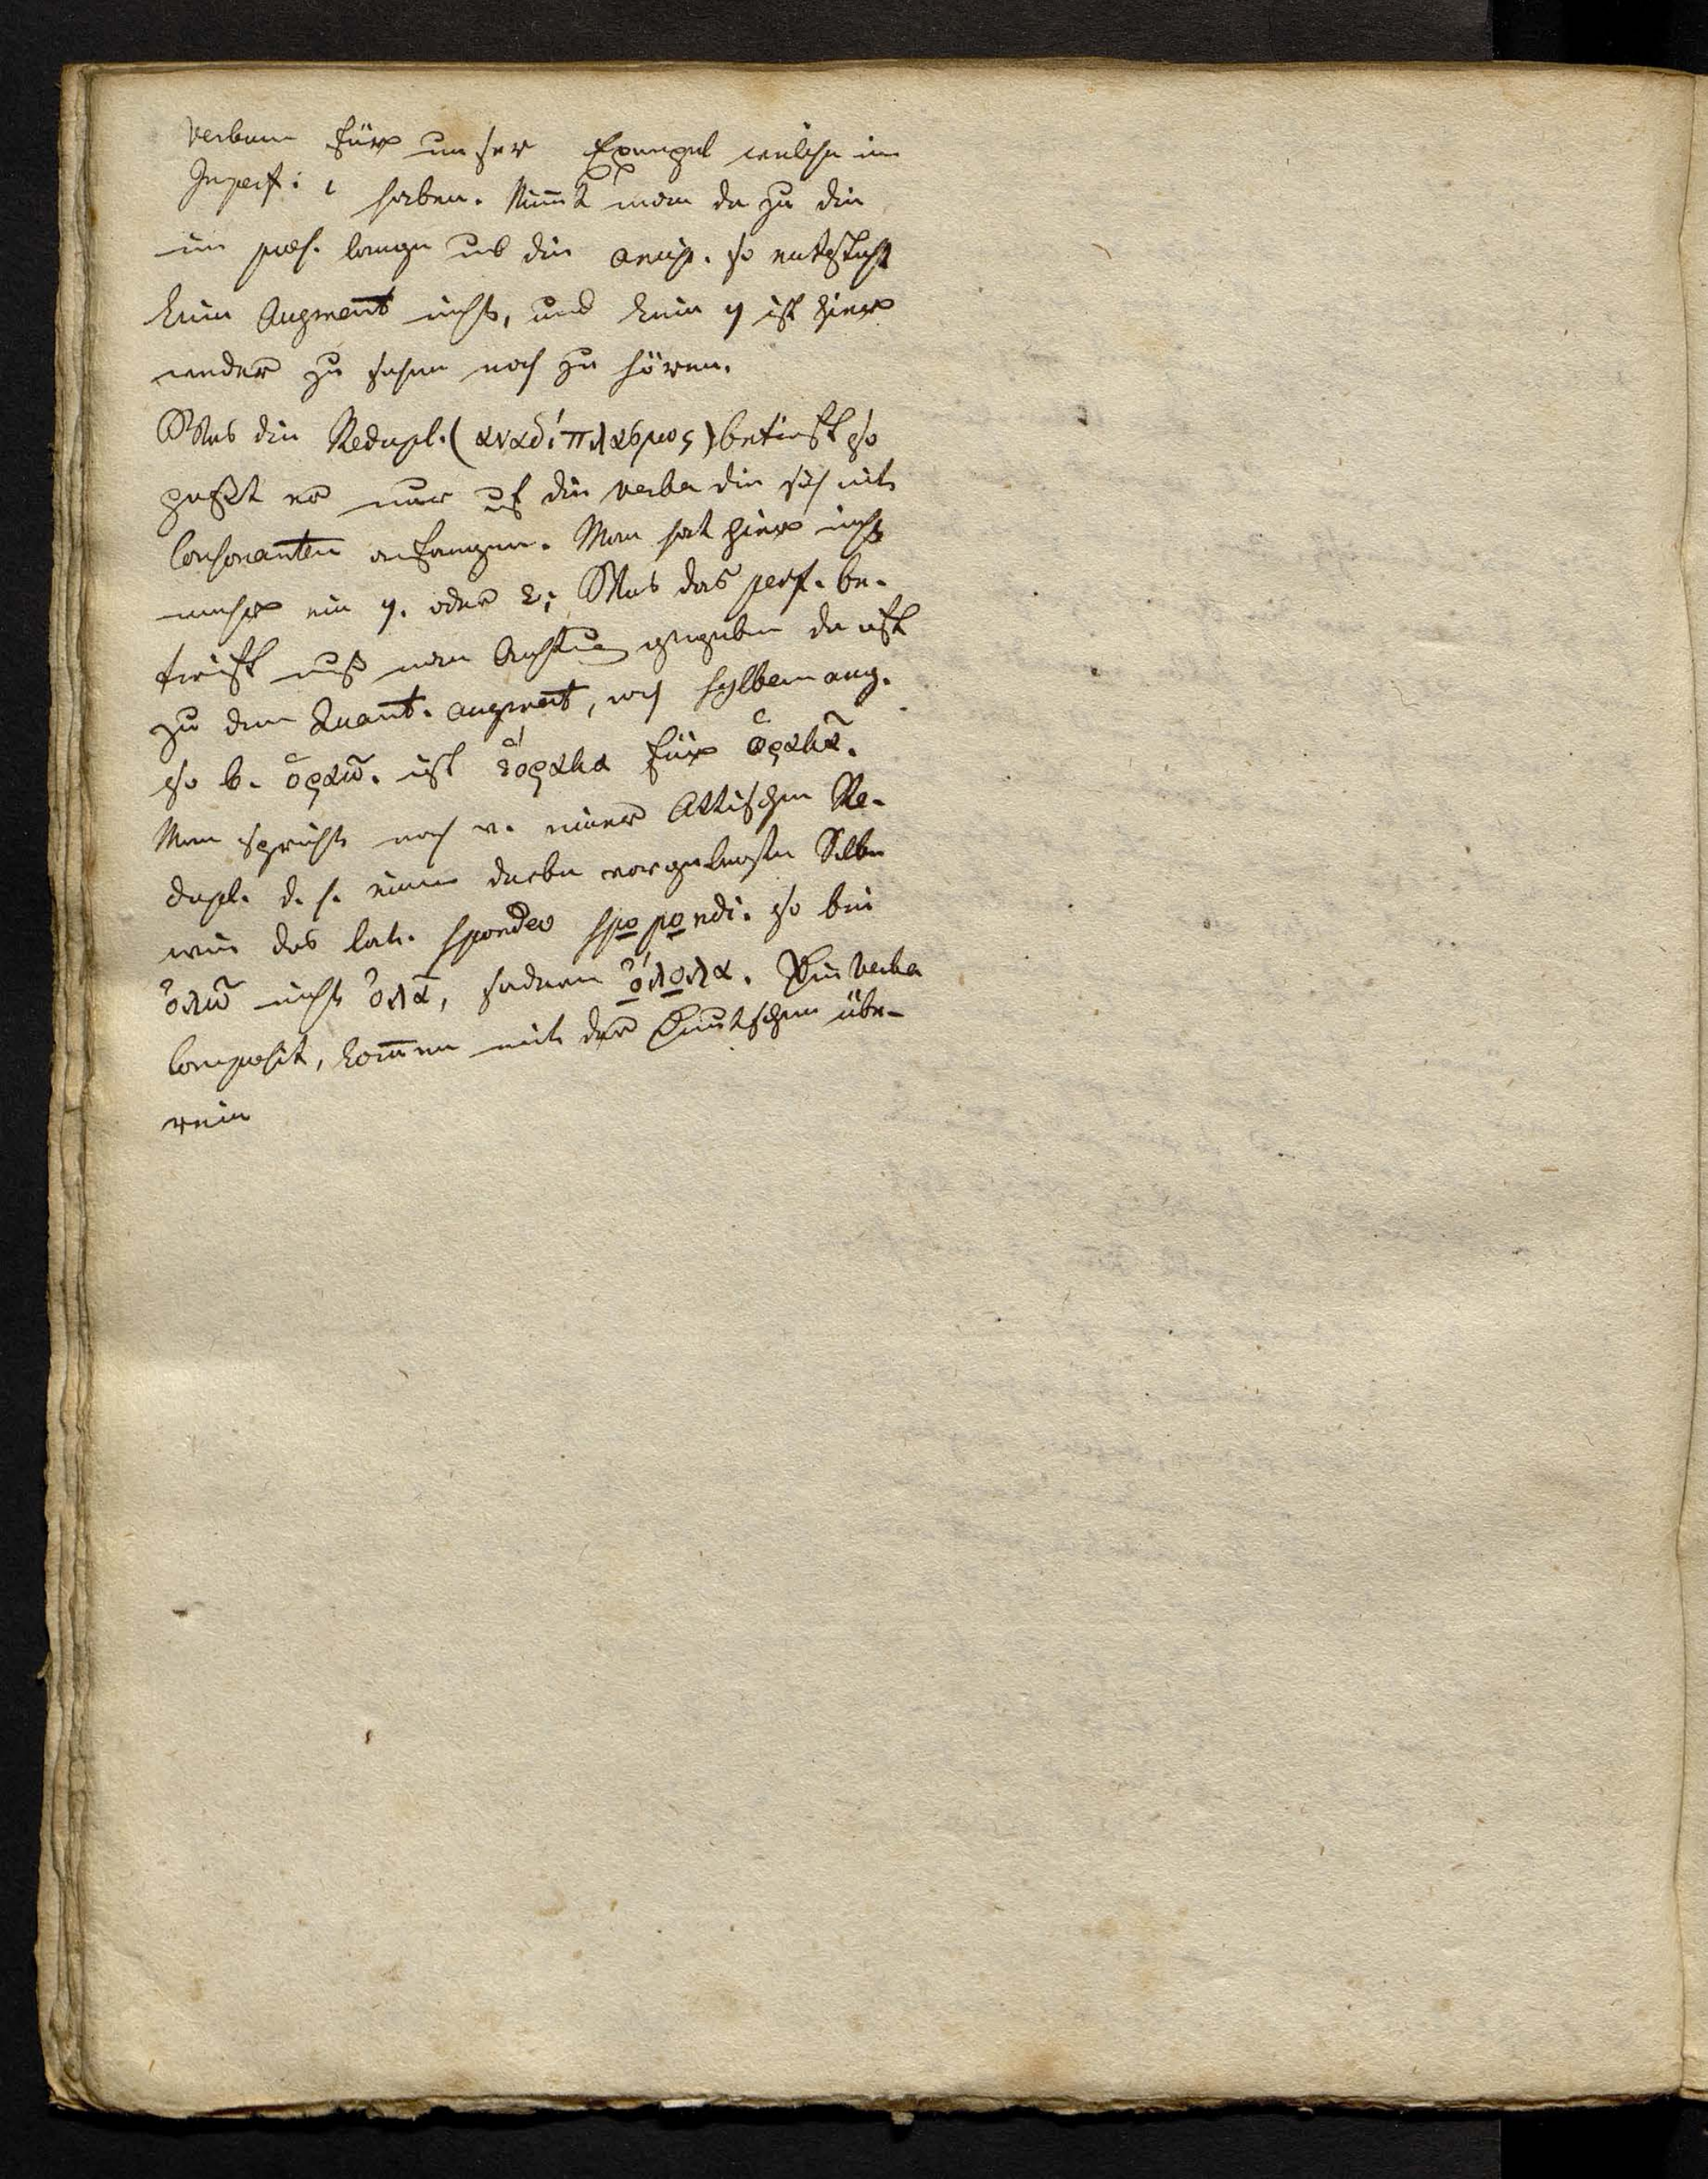 Verbum für unser Exempel welche im
Imperf: ι haben. Nimmt man da zu die
im praes. lange und die aspir. so entsteht
kein Augment nicht, und kein η ist hier
weder zu sehen noch zu hören.
Was die Redupl. (αναδίπλασμος) betrift so
geht er nur auf die verba die sich mit
Consonanten anfangen. Man hat hier nicht
mehr ein η. oder ε; Was das perf. be-
trift muß man Achtung geben da oft
zu dem Quant. augment, noch sylben aug.
so b. ὁραω. ist ἑόρακα für ὁρακα.
Man spricht noch v. einer Attischen Re-
dupl. d. h. einer vorgesetzten Silbe
wie das lat. spondeo spopondi. so bei
ὀλω nicht ὀλα, sondern ὄλολα. Die verba
composit, kommen mit den Deutschen übe-
rein